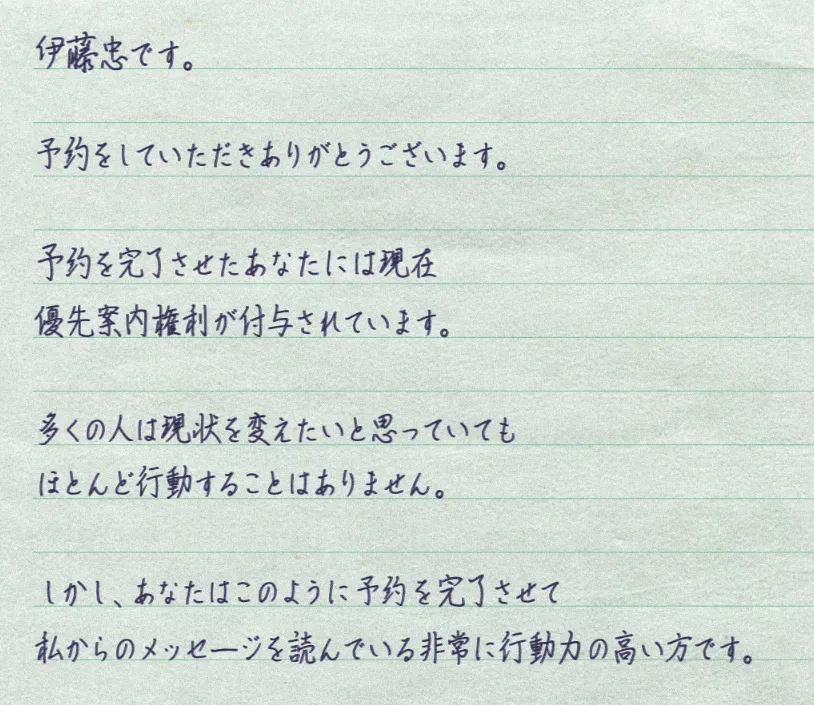 伊藤忠です。
予約をしていただきありがとうございます。
予約を完了させたあなたには現在
優先案内権利が付与されています。
多くの人は現状を変えたいと思っていても
ほとんど行動することはありません。
しかし、あなたはこのように予約を完了させて
私からのメッセージを読んでいる非常に行動力の高い方です。